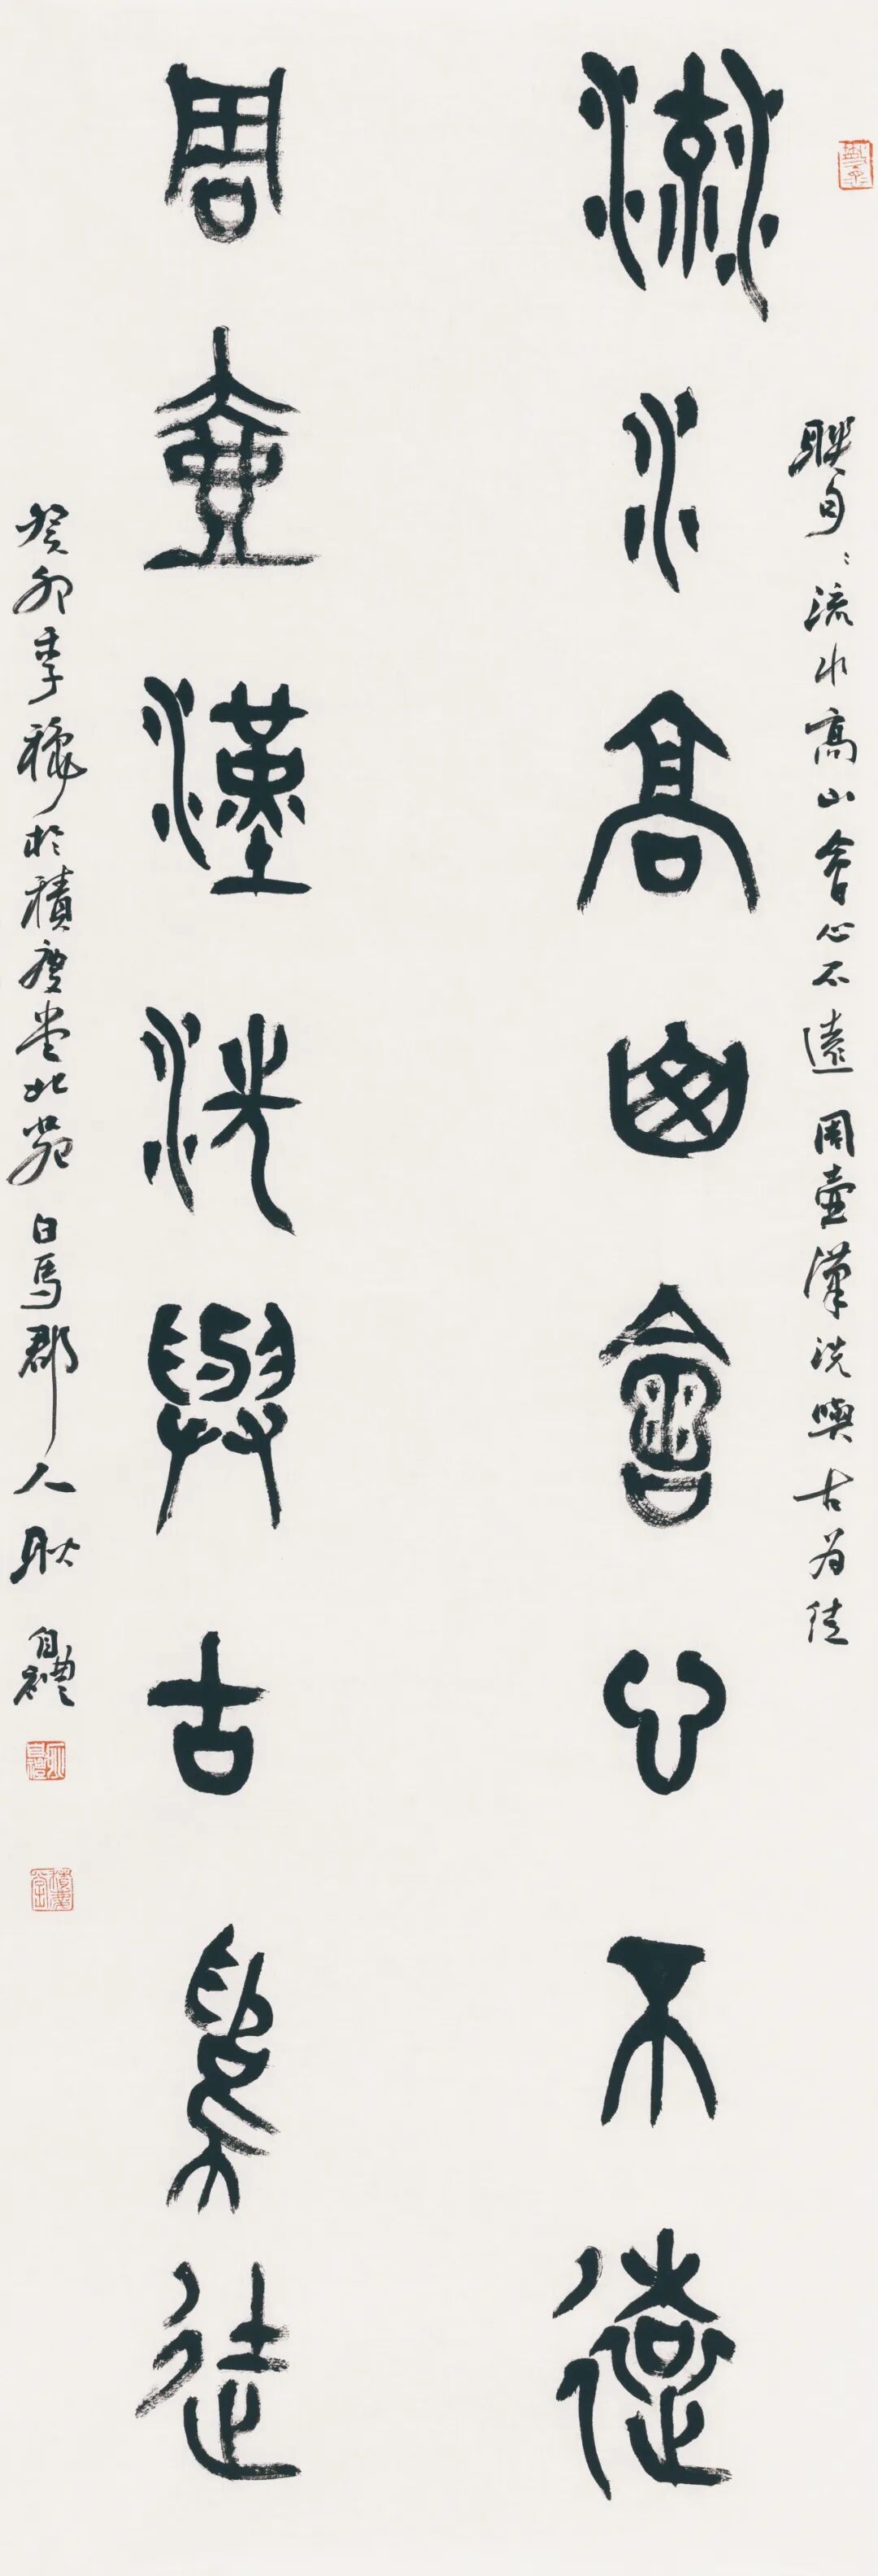 聯句：流水高山會心不遠 周壺漢洗與古為徒
流水高山會心不遠
周壺漢洗與古為徒
癸卯季穐於積慶堂北苑 白馬郡人耿自禮